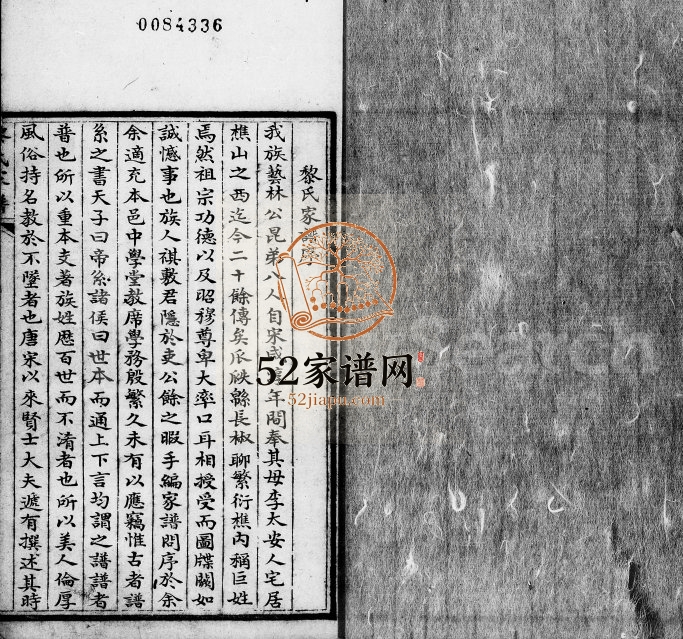 0084336
黎氏家譜序
我族藝林公昆弟八人自宋咸年間奉其母李太安人宅居
樵山之西迄今二十餘傳矣瓜瓞緜長椒聊繁衍樵內稱巨姓
焉然祖宗功德以及昭穆尊卑大率口耳相授受而圖牒闕如
誠憾事也族人祺敷君隱於吏公餘之暇手編家譜問序於余
余適充本邑中學堂教席學務殷繁久未有以應竊惟古者譜
系之書天子曰帝系諸侯曰世本而通上下言均謂之譜譜者
普也所以重本支著族姓歷百世而不淆者也所以美人倫厚
風俗持名教於不墜者也唐宋以來賢士大夫遞有撰述其時
52家谱网
52jiapu.com